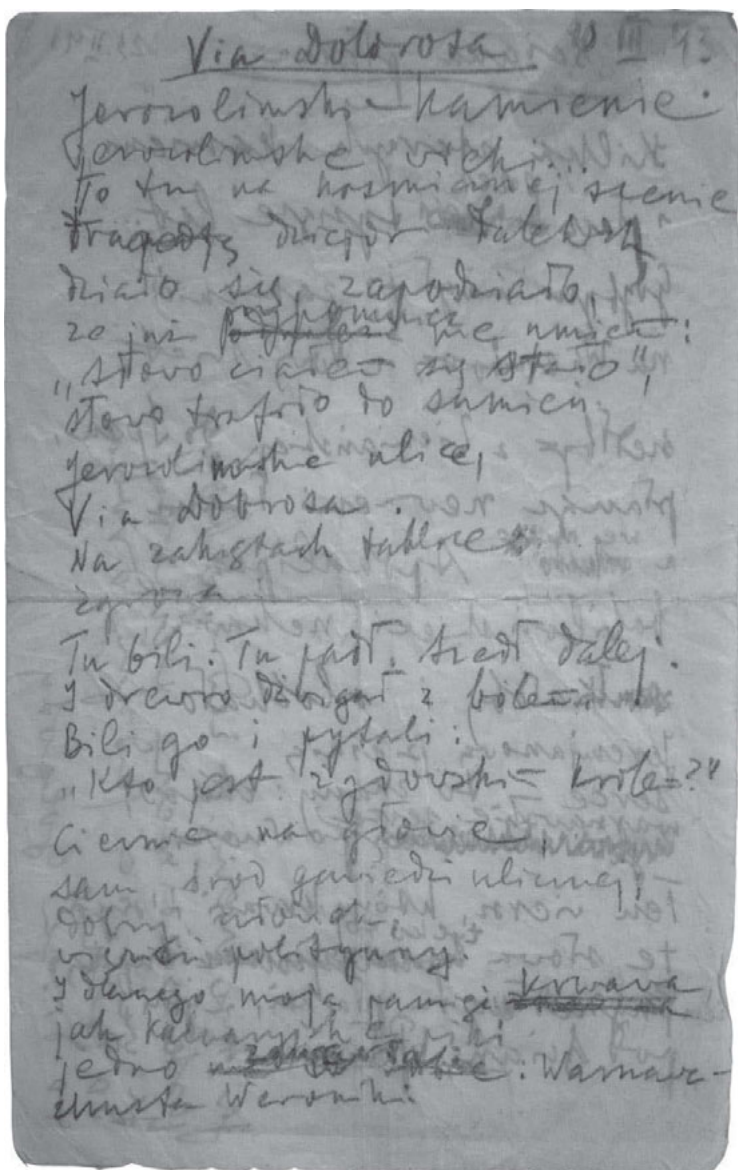 Via Dolorosa III 43
Jerozolimskie kamienie
jerozolimskie wieki...
To tu na kosmicznej scenie
tragedię dziejów dalekich
działo się, zapodziało,
że już przypomnieć nie umiem:
„Słowo ciałem się stało",
słowo trafiło do sumień.
Jerozolimskie ulice,
Via Dolorosa.
Na zakrętach tablice
zgroza
Tu bili. Tu padł. Szedł dalej.
I drzewo dźwigał z bólem
Bili go i pytali:
„Kto jest żydowskim królem?"
Ciernie na głowie,
sam, śród gawiedzi ulicznej,
dobry człowiek,
więzień polityczny.
I dlaczego moja pamięć krwawa
jak
jedno zawarła: Warszawa-
chusta Weroniki.